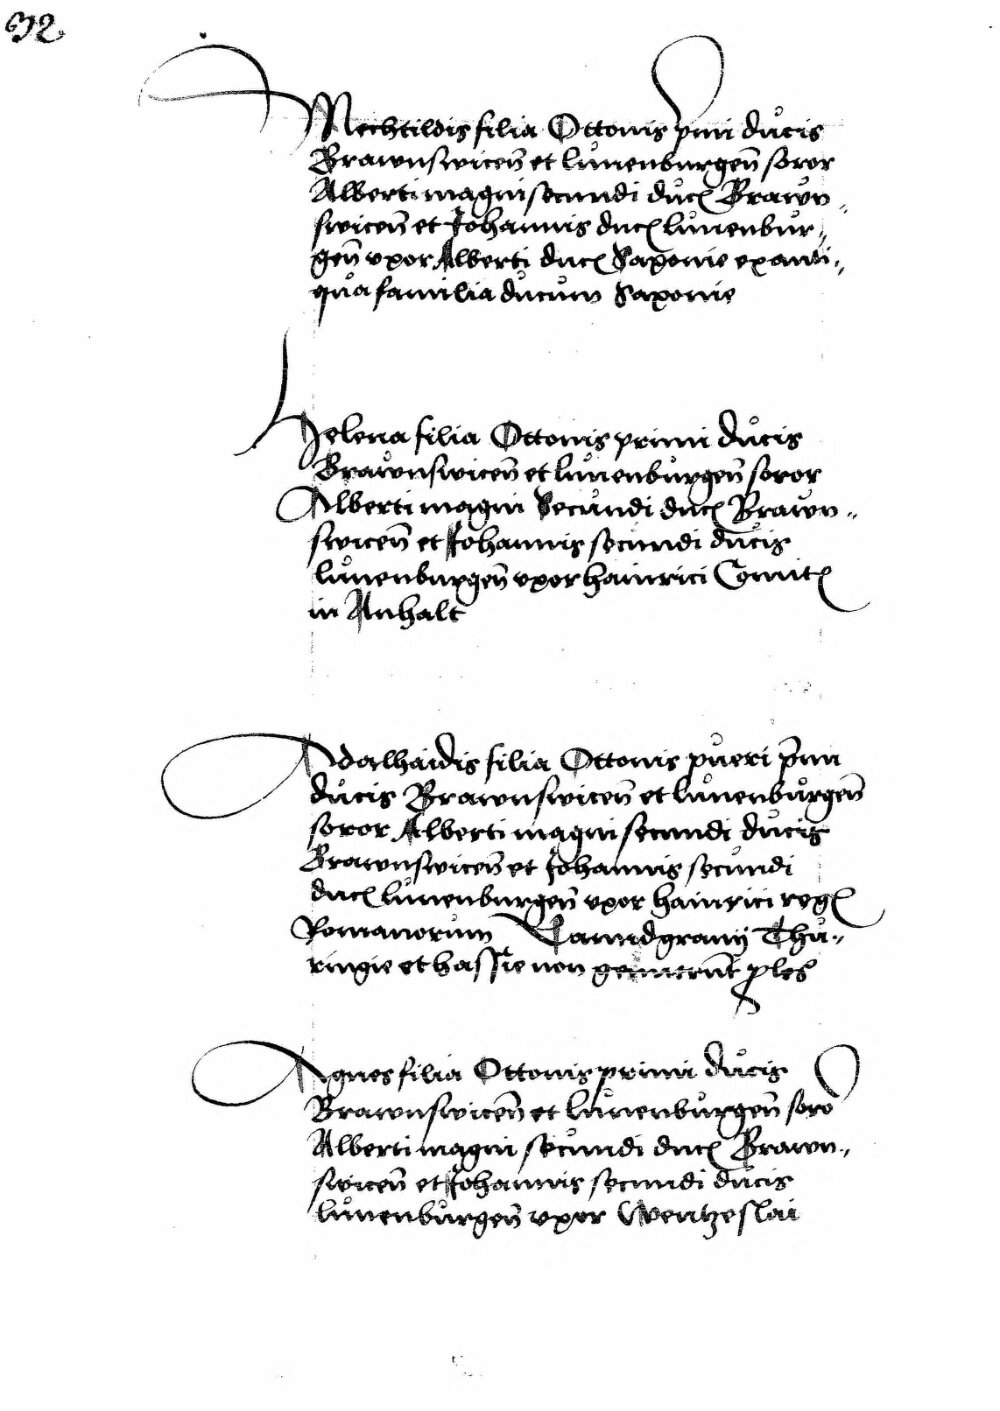 92.
Mechtildis filia Ottonis p̄mi ducis
Brawnswicen̄ et lunenburgen̄ soror
Alberti magni secundi duc[ Brawn„
swicen̄ et Johannis duc[ lunenbur„
gen̄ vxor Alberti duc[ Saxonie ex anti„
qua familia ducum Saxonie
Helena filia Ottonis primi ducis
Brawnswicen̄ et lunenburgen̄ soror
Alberti magni Secundi duc[ Brawn„
swicen̄ et Johannis secundi ducis
lunenburgen̄ vxor hainrici Comit[
in Anhalt
Adalhaidis filia Ottonis pueri p̄mi
ducis Brawnswicen̄ et lunenburgen̄
soror Alberti magni secundi ducis
Brawnswicen̄ et Johannis secundi
duc[ lunenburgen̄ vxor hainrici reg[
Romanorum Lanndgrauij Thu„
ringie et hassie non genuerūt ples
Agnes filia Ottonis primi ducis
Brawnswicen̄ et lunenburgen̄ soro
Alberti magni secundi duc[ Brawn„
swicen̄ et Johannis secundi ducis
lunenburgen̄ vxor Wentzeslai